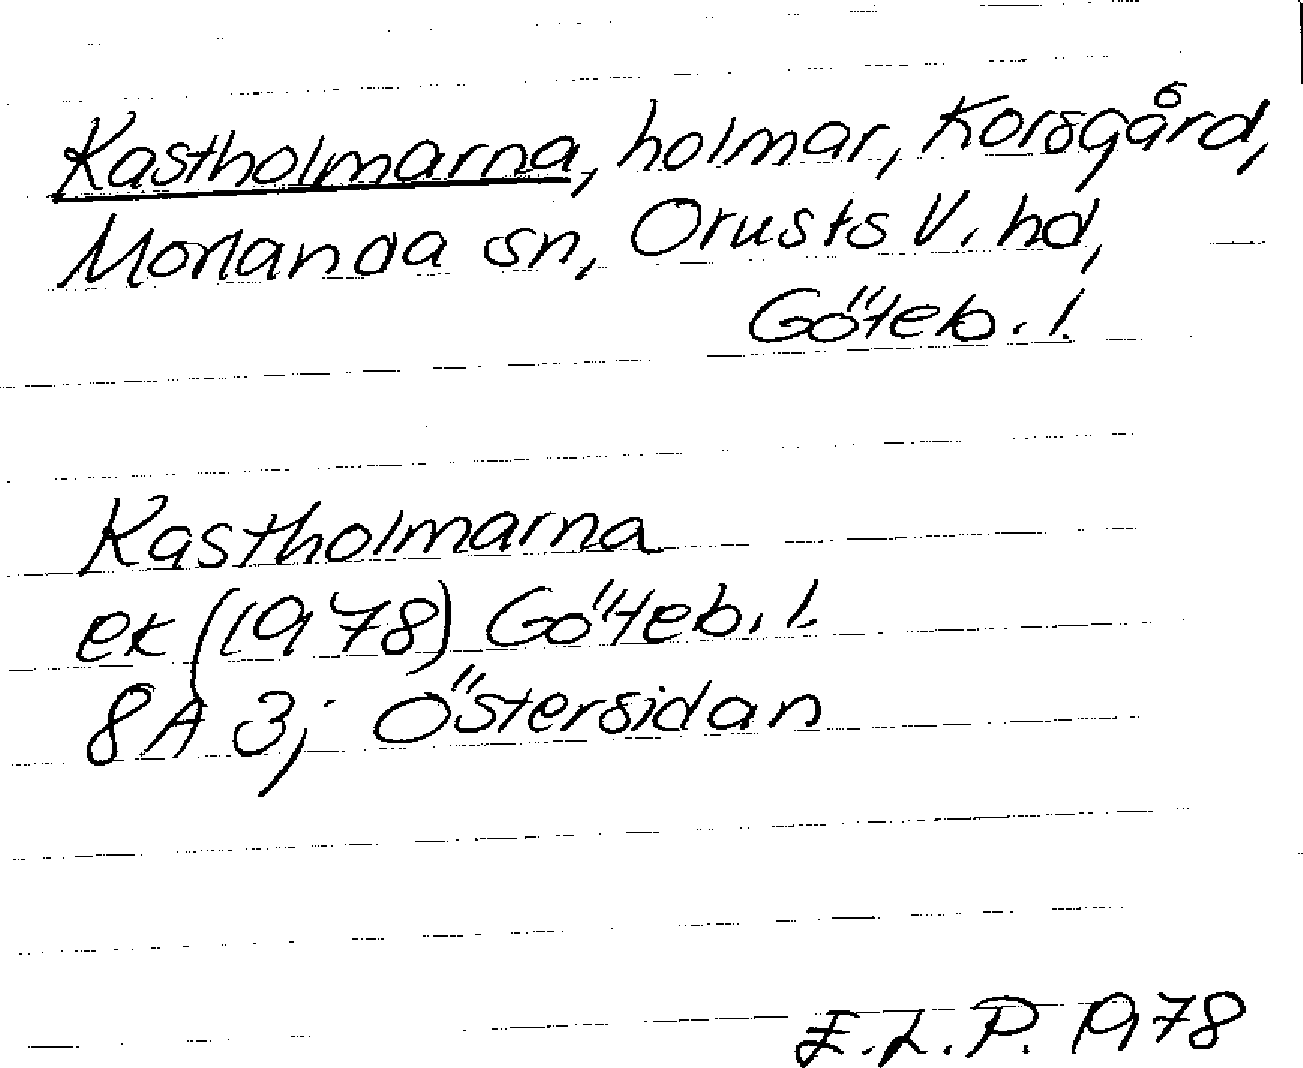 Kastholmarna, holmar, Korsgård,
Morlanda sn, Orusts V. hd,
Göteb. l.
Kastholmarna
ek (1978) Göteb. l.
8A 3; Östersidan
E.L.P. 1978